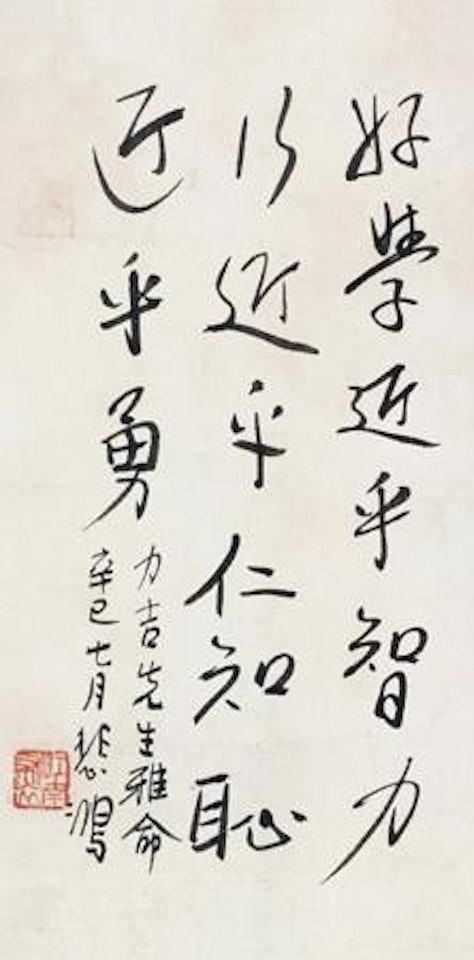 好學近乎智力
行近乎仁知恥
近乎勇
力吉先生雅命
辛巳七月悲鴻